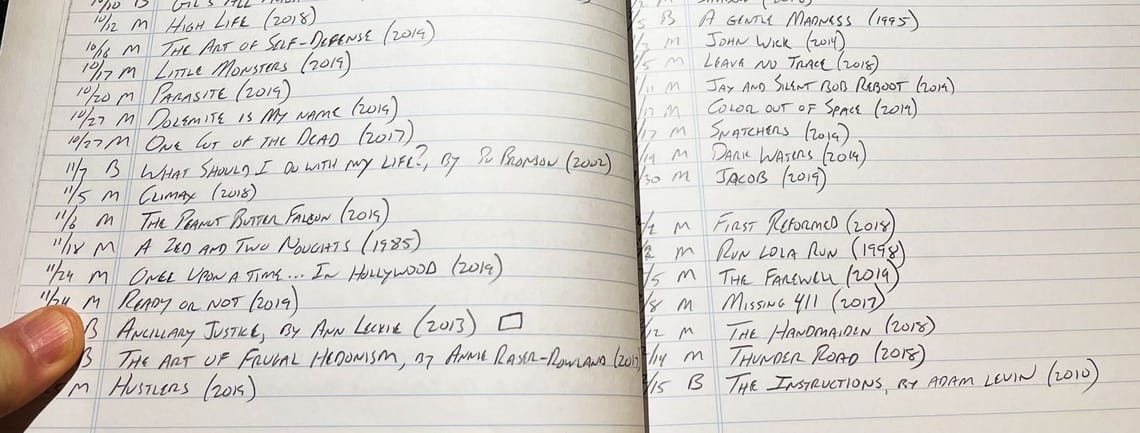 10/10 B GIL'S ALL
10/12 M HIGH LIFE (2018)
10/16 M THE ART OF SELF-DEFENSE (2019)
10/17 M LITTLE MONSTERS (2019)
10/20 M PARASITE (2019)
10/27 M DOLEMITE IS MY NAME (2019)
10/27 M ONE CUT OF THE DEAD (2017)
11/7 B WHAT SHOULD I DO WITH MY LIFE?, BY PO BRONSON (2002)
11/5 M CLIMAX (2018)
11/6 M THE PEANUT BUTTER FALCON (2019)
11/18 M A ZED AND TWO NOUGHTS (1985)
11/24 M ONCE UPON A TIME... IN HOLLYWOOD (2019)
11/24 M READY OR NOT (2019)
B ANCILLARY JUSTICE, BY ANN LECKIE (2013)
B THE ART OF FRUGAL HEDONISM, BY ANNIE RASER-ROWLAND
M HUSTLERS (2019)
B A GENTLE MADNESS (1995)
M JOHN WICK (2014)
M LEAVE NO TRACE (2018)
M JAY AND SILENT BOB REBOOT (2019)
M COLOR OUT OF SPACE (2019)
M SNATCHERS (2019)
M DARK WATERS (2019)
/30 M JACOB (2019)
/2 M FIRST REFORMED (2018)
/2 M RUN LOLA RUN (1998)
/5 M THE FAREWELL (2019)
/8 M MISSING 411 (2017)
/12 M THE HANDMAIDEN (2018)
/14 M THUNDER ROAD (2018)
/15 B THE INSTRUCTIONS, BY ADAM LEVIN (2010)